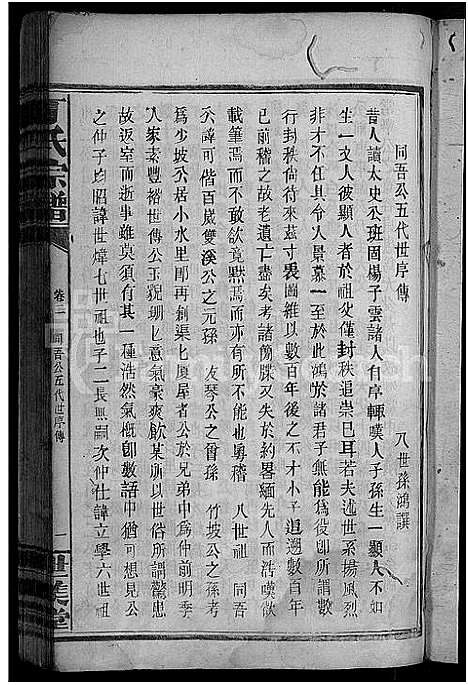 同吾公五代世序傳
八世孫鴻譔
昔人讀太史公班固揚子雲諸人自序輒嘆人子孫生一顯人不如
生一文人彼顯人者於祖父僅封秩追崇已耳若夫述世系揚風烈
非不藉其令人景慕一至於此鴻於諸君子無能為役即所謂數
行封秩倘待來茲寸裘圖維以數百年後之不才小子追溯數百年
之前稽之故老遺亡盡矣考諸簡牒又失於約畧緬先人而浩嘆欲
載筆焉而不敢欲竟黙焉而亦敢也勇稽 八世祖 同吾
公諱可偕百歲雙溪公之元孫 友琴公之曾孫 竹坡公之孫考
為少坡公居小水里即再創渠上廈屋者公於兄弟中為仲前明季
人家素豐裕世傳公玉貌珊上意氣豪爽飲某所以世俗所謂驚悤
故返室而逝事雖莫須有其一種浩然氣概即數語中猶可想見公
之仲子均昭諱世煒七世祖也子二長無嗣次仲仕諱立學六世祖
氏宗譜
卷二 同吾公五代世序傳
一